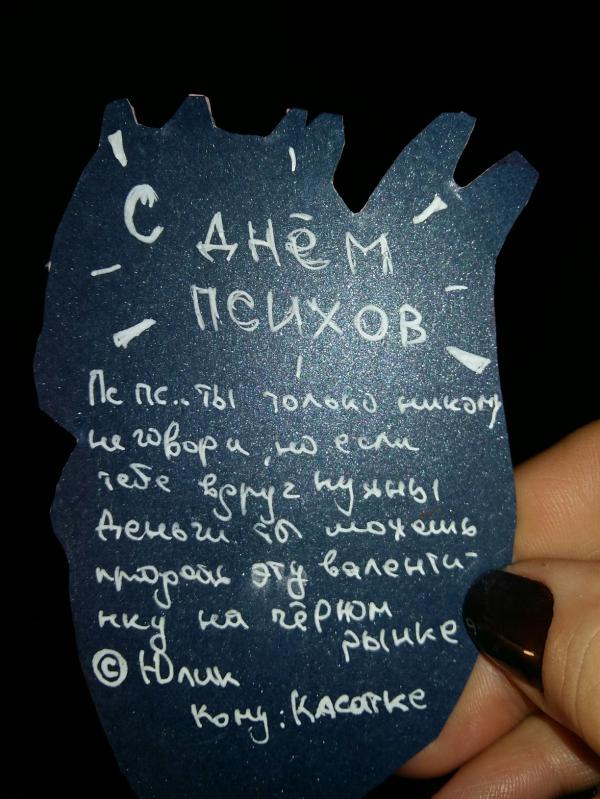 С
ДНЁМ
ПСИХОВ
Пс пс.. ты только никому
не говори, но если
тебе вдруг нужны
деньги ты можешь
продать эту валенти-
нку на чёрном
рынке
© Юлик
Кому: Касатке